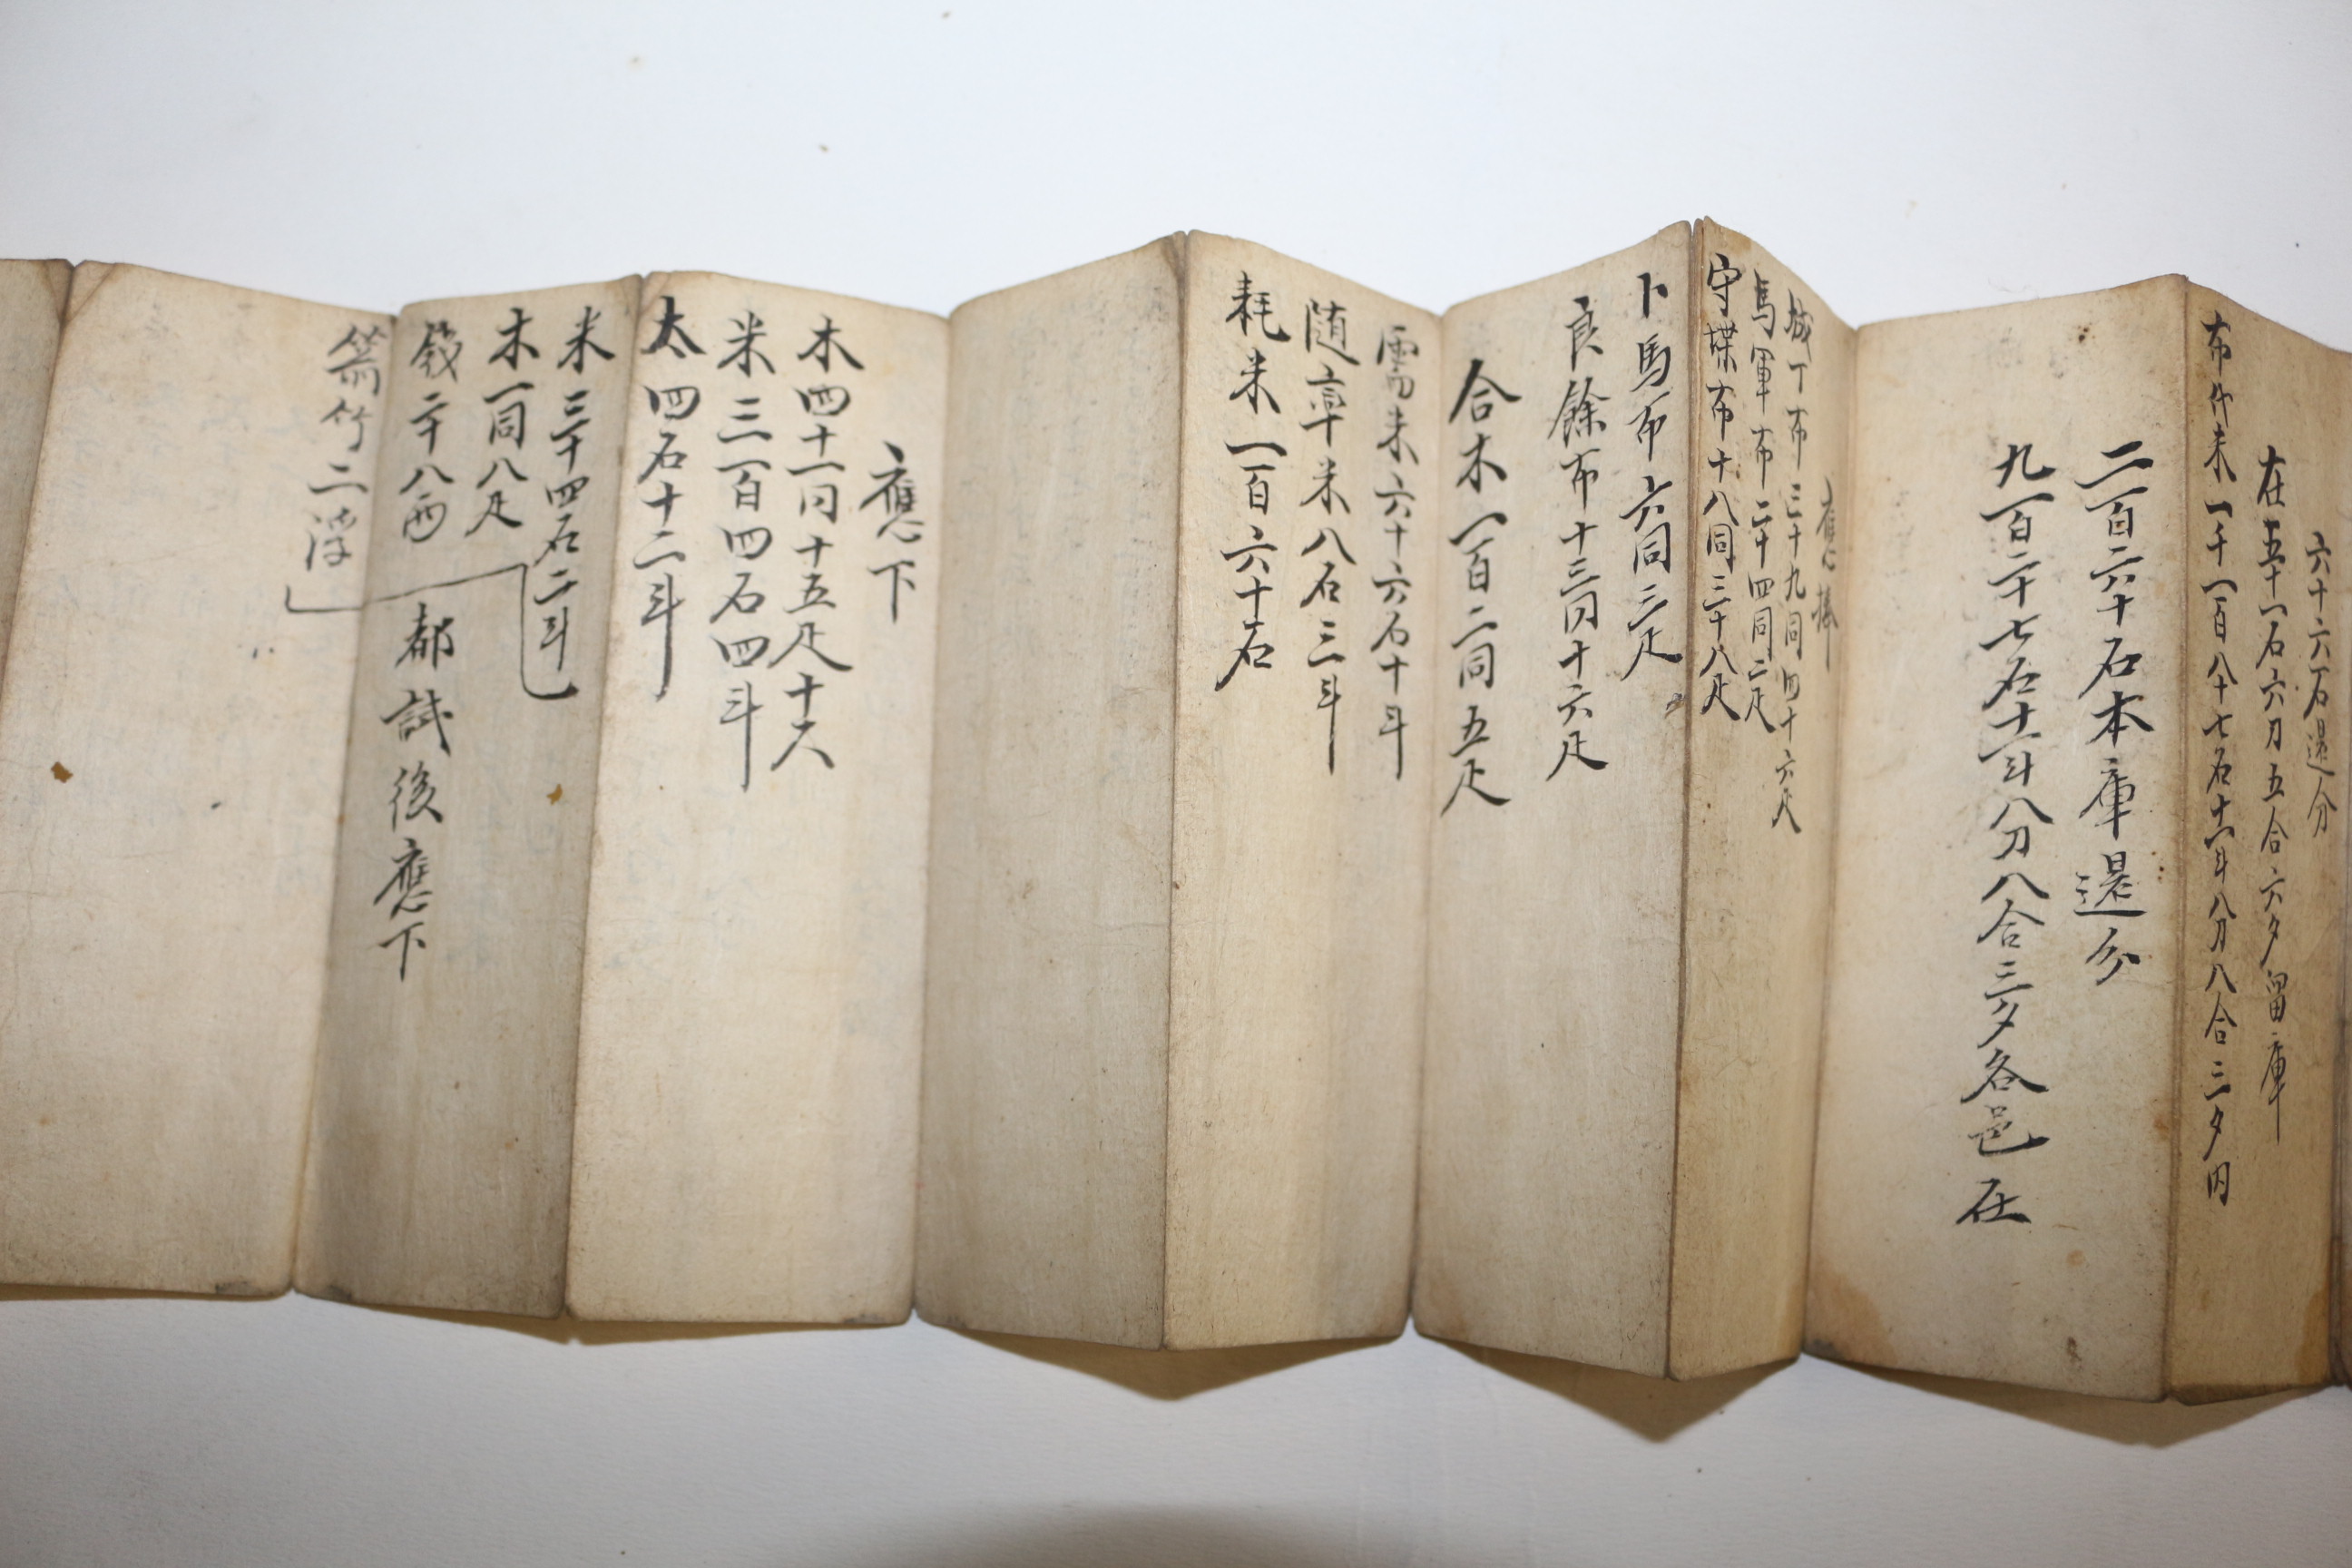 六十六石還分
在五十一石六刀五合六夕留庫
布代米一千一百八十七石十一斗八刀八合三夕內
二百六十石本庫還分
九百二十七石十一斗八刀八合三夕各邑在
應捧
城丁布三十九同四十六疋
馬軍布二十四同二疋
守堞布十八同三十八疋
卜馬布六同三疋
良餘布十三同十六疋
合木一百二同五疋
需米六十六石十斗
隨率米八石三斗
耗米一百六十石
應下
木四十一同十五疋十六
米三百四石四斗
太四石十二斗
米三十四石二斗
木一同八疋
錢二十八両
箭竹二浮
都試後應下